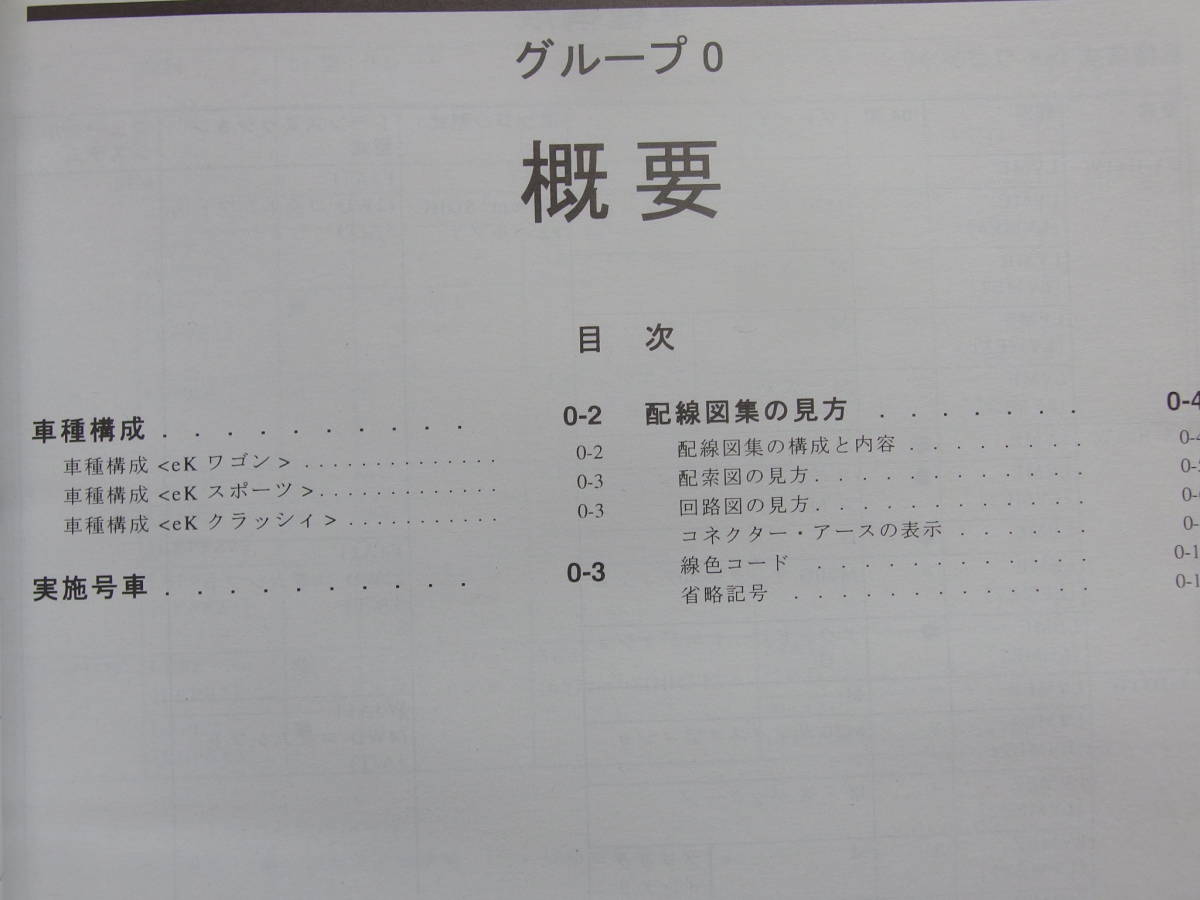 グループ 0
概要
目 次
車種構成 . . . . . . . . . . . 0-2
車種構成 <eK ワゴン> . . . . . . . . . . . . . . 0-2
車種構成 <eK スポーツ> . . . . . . . . . . . . . 0-3
車種構成 <eK クラッシィ> . . . . . . . . . . . 0-3
実施号車 . . . . . . . . . . 0-3
配線図集の見方 . . . . . . . 0-4
配線図集の構成と内容 . . . . . . . . 0-4
配索図の見方 . . . . . . . . . . . .
回路図の見方 . . . . . . . . . . . .
コネクター・アースの表示 . . . . . .
線色コード . . . . . . . . . . . .
省略記号 . . . . . . . . . . . . .